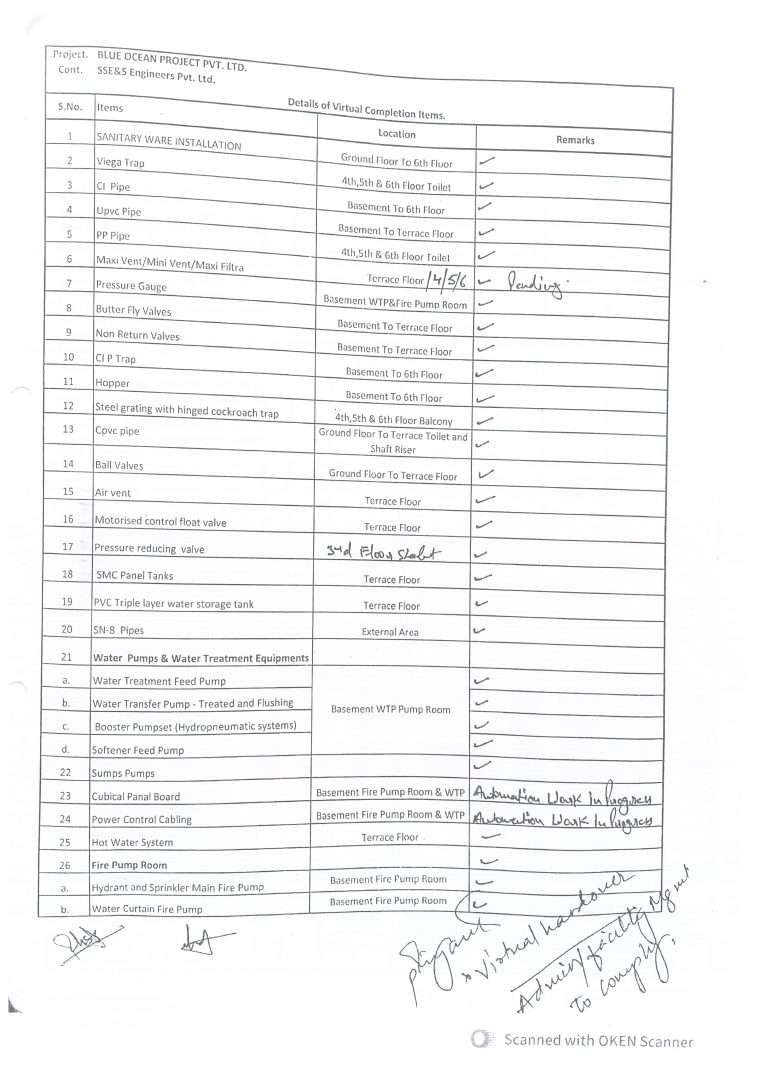 Project. BLUE OCEAN PROJECT PVT. LTD.
Cont. SSE&S Engineers Pvt. Ltd.
Details of Virtual Completion Items.
S.No. Items Location Remarks
1 SANITARY WARE INSTALLATION Ground Floor To 6th Floor ✓
2 Viega Trap 4th,5th & 6th Floor Toilet ✓
3 CI Pipe Basement To 6th Floor ✓
4 Upvc Pipe Basement To Terrace Floor ✓
5 PP Pipe 4th,5th & 6th Floor Toilet ✓
6 Maxi Vent/Mini Vent/Maxi Filtra Terrace Floor /4/5/6 ✓ Pending.
7 Pressure Gauge Basement WTP&Fire Pump Room ✓
8 Butter Fly Valves Basement To Terrace Floor ✓
9 Non Return Valves Basement To Terrace Floor ✓
10 CI P Trap Basement To 6th Floor ✓
11 Hopper Basement To 6th Floor ✓
12 Steel grating with hinged cockroach trap 4th,5th & 6th Floor Balcony ✓
13 Cpvc pipe Ground Floor To Terrace Toilet and
Shaft Riser ✓
14 Ball Valves Ground Floor To Terrace Floor ✓
15 Air vent Terrace Floor ✓
16 Motorised control float valve Terrace Floor ✓
17 Pressure reducing valve 3rd Floor ✓
18 SMC Panel Tanks Terrace Floor ✓
19 PVC Triple layer water storage tank Terrace Floor ✓
20 SN-8 Pipes External Area ✓
21 Water Pumps & Water Treatment Equipments
a. Water Treatment Feed Pump ✓
b. Water Transfer Pump - Treated and Flushing Basement WTP Pump Room ✓
c. Booster Pumpset (Hydropneumatic systems) ✓
d. Softener Feed Pump ✓
22 Sumps Pumps ✓
23 Cubical Panal Board Basement Fire Pump Room & WTP Automation Work In Progress
24 Power Control Cabling Basement Fire Pump Room & WTP Automation Work In Progress
25 Hot Water System Terrace Floor ✓
26 Fire Pump Room ✓
a. Hydrant and Sprinkler Main Fire Pump Basement Fire Pump Room ✓
b. Water Curtain Fire Pump Basement Fire Pump Room ✓
Virtual handover
Admin/facility Mgmt
to comply.
Scanned with OKEN Scanner